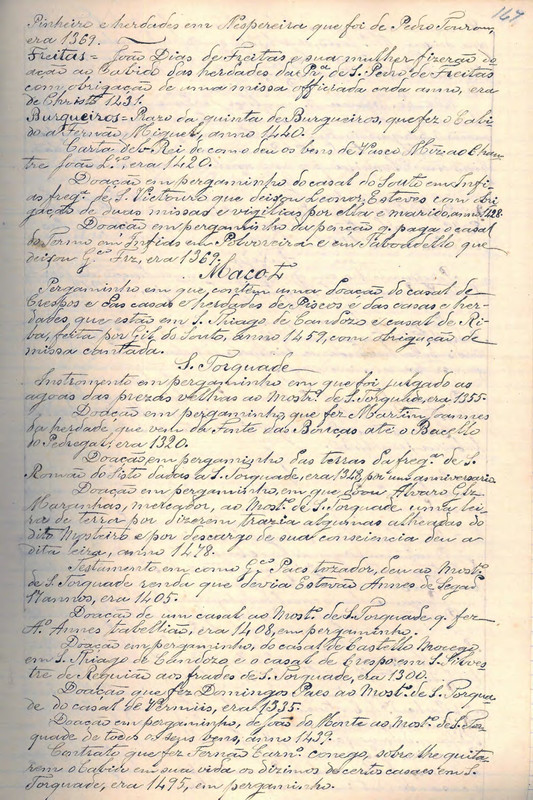 167
Pinheiro e herdades em Nespereira que foi de Pedro Touron,
era 1369.
Freitas = João Dias de Freitas e sua mulher fizerão do
ação ao Cabido das herdades da Frª. de S. Pedro de Freitas
com obrigação de uma missa officiada cada anno, era
de Christo 1431.
Burgueiros = Prazo da quinta de Burgueiros, que fez o Cabi
do a Fernão Miguez, anno 1440.
Carta del-Rei de como deu os bens de Vasco Miz ao Chan
tre João Lçº, era 1420.
Doação em pergaminho do casal do Souto em Infi-
as fregª de S. Victouro que deixou Leonor Esteves com obri
gação de duas missas e vigilias por ella e marido, anno 1428.
Doação em pergaminho da penção q. paga o casal
do Termo em Infias em Polvoreira e em Taboadello que
deixou Gco Frz, era 1369.
Maço Z
Pergaminho em que contem uma doação do casal de
Crespos e das casas e herdades de Piscos e das casas e her-
dades que estão em S. Thiago de Candozo e casal de Ri-
ba, feita por Gil do Souto, anno 1459, com obrigação de
missa cantada.
S. Torquade
Instromento em pergaminho em que foi julgado as
agoas das prezas velhas ao Mostº de S. Torquade, era 1355.
Doação em pergaminho, que fez Martim Joannes
da herdade que vem da Fonte das Bouças até o Bacello
do Pedregal, era 1320.
Doação em pergaminho das terras da fregª de S.
Romão do Sisto dadas a S. Torquade, era 1348, por um anniversario
Doação em pergaminho, em que doou Alvaro Glz
Maranhas, mercador, ao Mostº de S. Torquade uma lei
ra de terra por dizerem trazia algumas alheadas do
dito Mosteiro e por descargo de sua consciencia deu a
dita leira, anno 1478.
Testamento em como Gco Paes tozador, deu ao Mostº
de S. Torquade renda que devia Estevão Annes de
17 annos, era 1405.
Doação de um casal ao Mostº de S. Torquade q. fez
Aº Annes tabellião, era 1408, em pergaminho.
Doação em pergaminho, do casal de Castello
em S. Thiago de Candozo e o casal de Crespo em S. Silves
tre de Requião aos frades de S. Torquade, era 1300.
Doação que fez Domingos Paes ao Mostº de S. Torqua
de do casal de Vermuis, era 1335.
Doação em pergaminho, de João do Monte ao Mostº de S. Tor
quade de todos os seus bens, anno 1439.
Contrato que fez Fernão Carnº conego, sobre lhe quita
rem o Cabido em sua vida os dizimos de certos casaes em S.
Torquade, era 1495, em pergaminho.